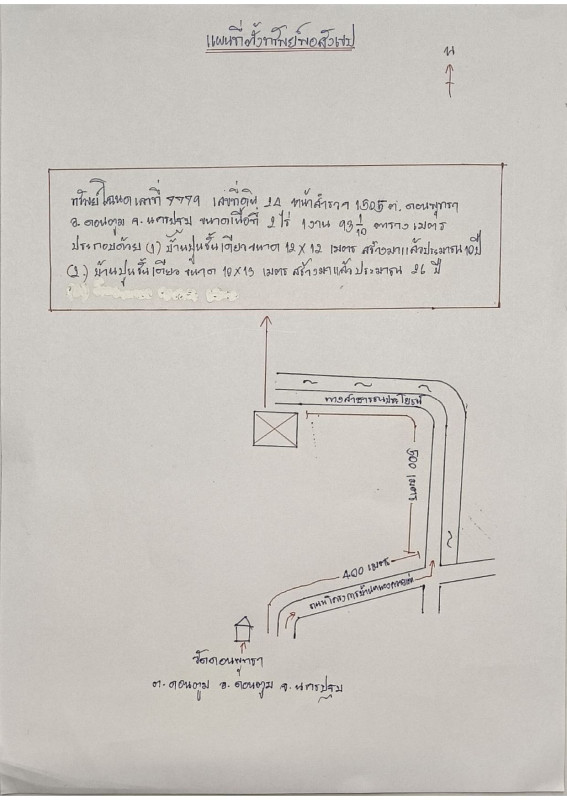 แผนที่ตั้งทรัพย์พอสังเขป
N
ทรัพย์โฉนดเลขที่ 9779 เลขที่ดิน 14 หน้าสำรวจ 1505 ต. ดอนพุทรา
อ. ดอนตูม จ. นครปฐม ขนาดเนื้อที่ 2 ไร่ 1 งาน 93 1/10 ตารางเมตร
ประกอบด้วย (1) บ้านปูนชั้นเดียวขนาด 12 x 12 เมตร สร้างมาแล้วประมาณ 10 ปี
(2.) บ้านปูนชั้นเดียว ขนาด 10 x 13 เมตร สร้างมาแล้ว ประมาณ 26 ปี
ทางสาธารณประโยชน์
500 เมตร
400 เมตร
วัดดอนพุทรา
ต. ดอนตูม อ. ดอนตูม จ. นครปฐม